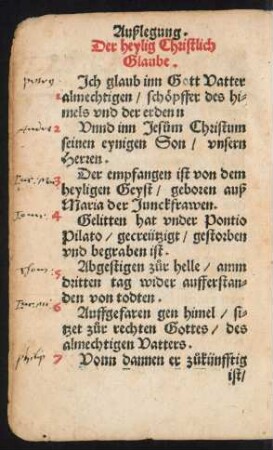 Außlegung.
Der heylig Christlich
Glaube.
Ich glaub inn Gott Vatter
1 almechtigen / schöpffer des hi-
mels vnd der erdenn
2 Vnnd inn Jesüm Christum
seinen eynigen Son / vnsern
Herren.
3 Der empfangen ist von dem
heyligen Geyst / geboren auß
Maria der Junckfrawen.
4 Gelitten hat vnder Pontio
Pilato / gecreützigt / gestorben
vnd begraben ist.
5 Abgestigen zür helle / amm
dritten tag wider aufferstan-
den von todten.
6 Auffgefaren gen himel / si-
tzet zür rechten Gottes / des
almechtigen Vatters.
philip 7 Vonn dannen er zükünfftig
ist/